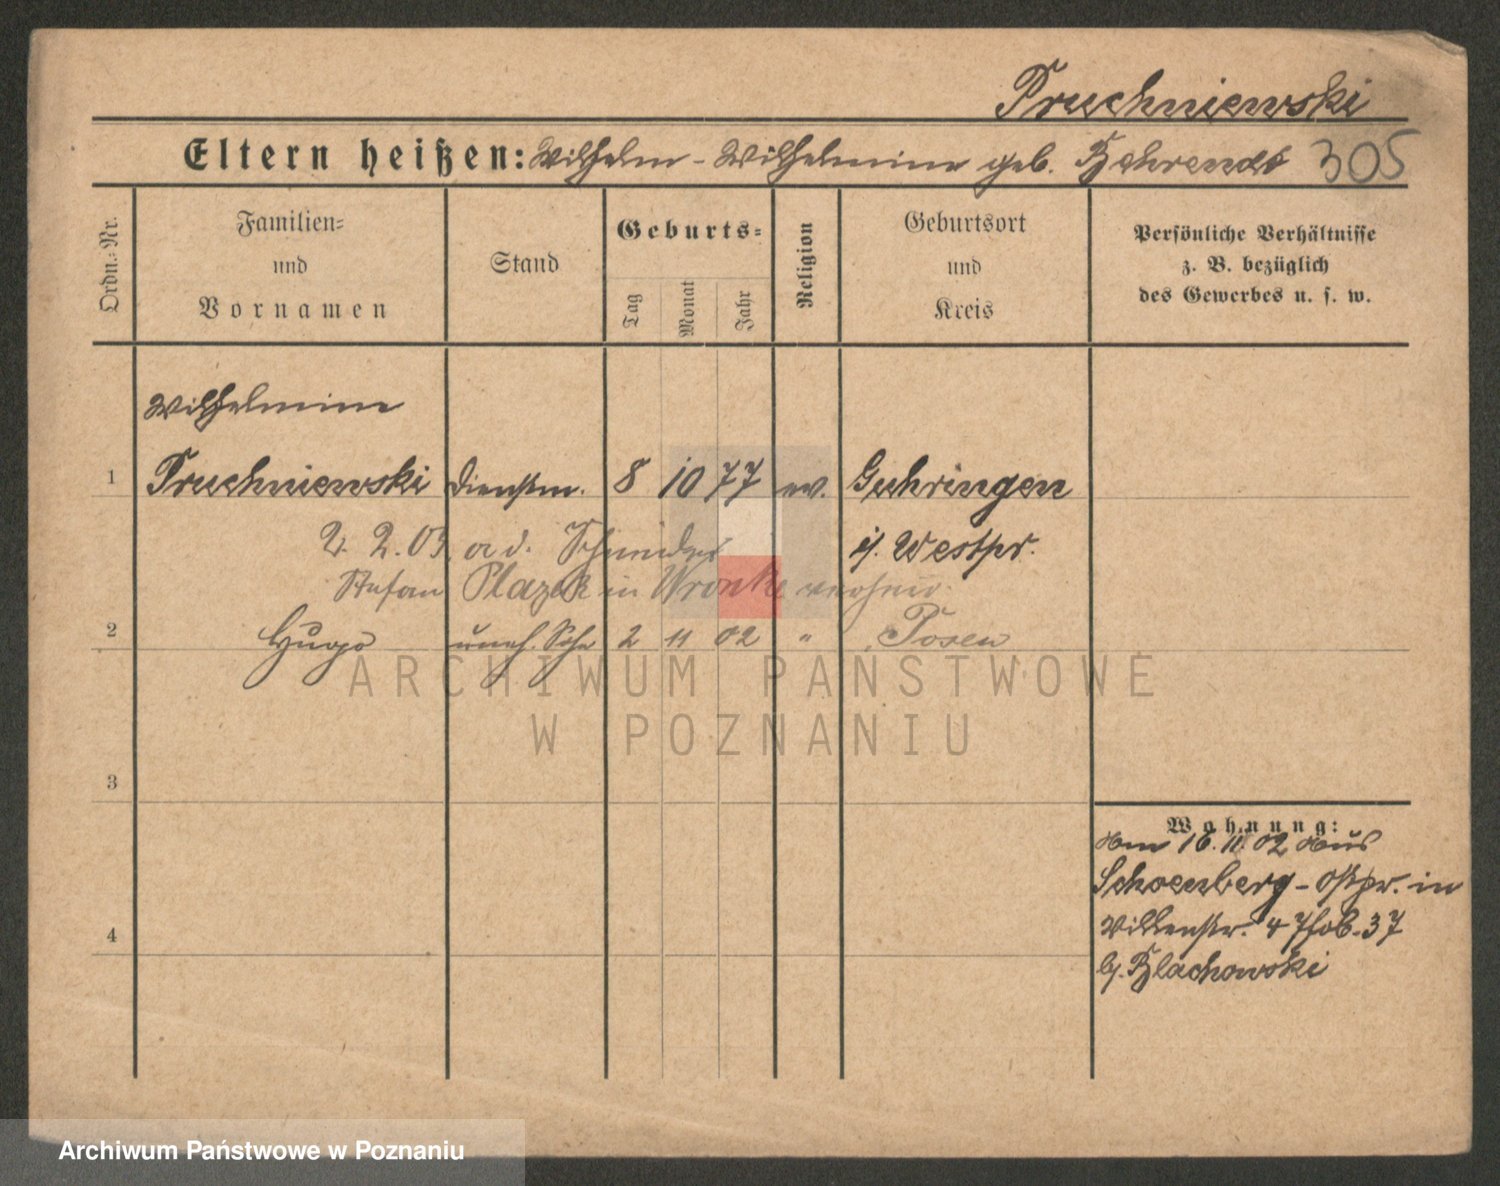 Pruchniewski
Eltern heißen: Wilhelm - Wilhelmine geb. Behrendt 305
Ordn.-Nr.
Familien- und Vornamen
Stand
Geburts-
Tag
Monat
Jahr
Religion
Geburtsort und Kreis
Persönliche Verhältnisse
z. B. bezüglich
des Gewerbes u. s. w.
Wilhelmine
1 Pruchniewski Dienstm. 8 10 77 ev. Guhringen
2. 2. 03 a d. Schneider i/. Westpr.
Stefan Plazek in Wronke
2 Hugo uneh. Sohn 2 11 02 " Posen
ARCHIWUM PAŃSTWOWE
W POZNANIU
3
Wohnung:
Am 16. 11. 02 aus
Schoenberg - Ostpr. in
4 37
b/. Blachowski
4
Archiwum Państwowe w Poznaniu